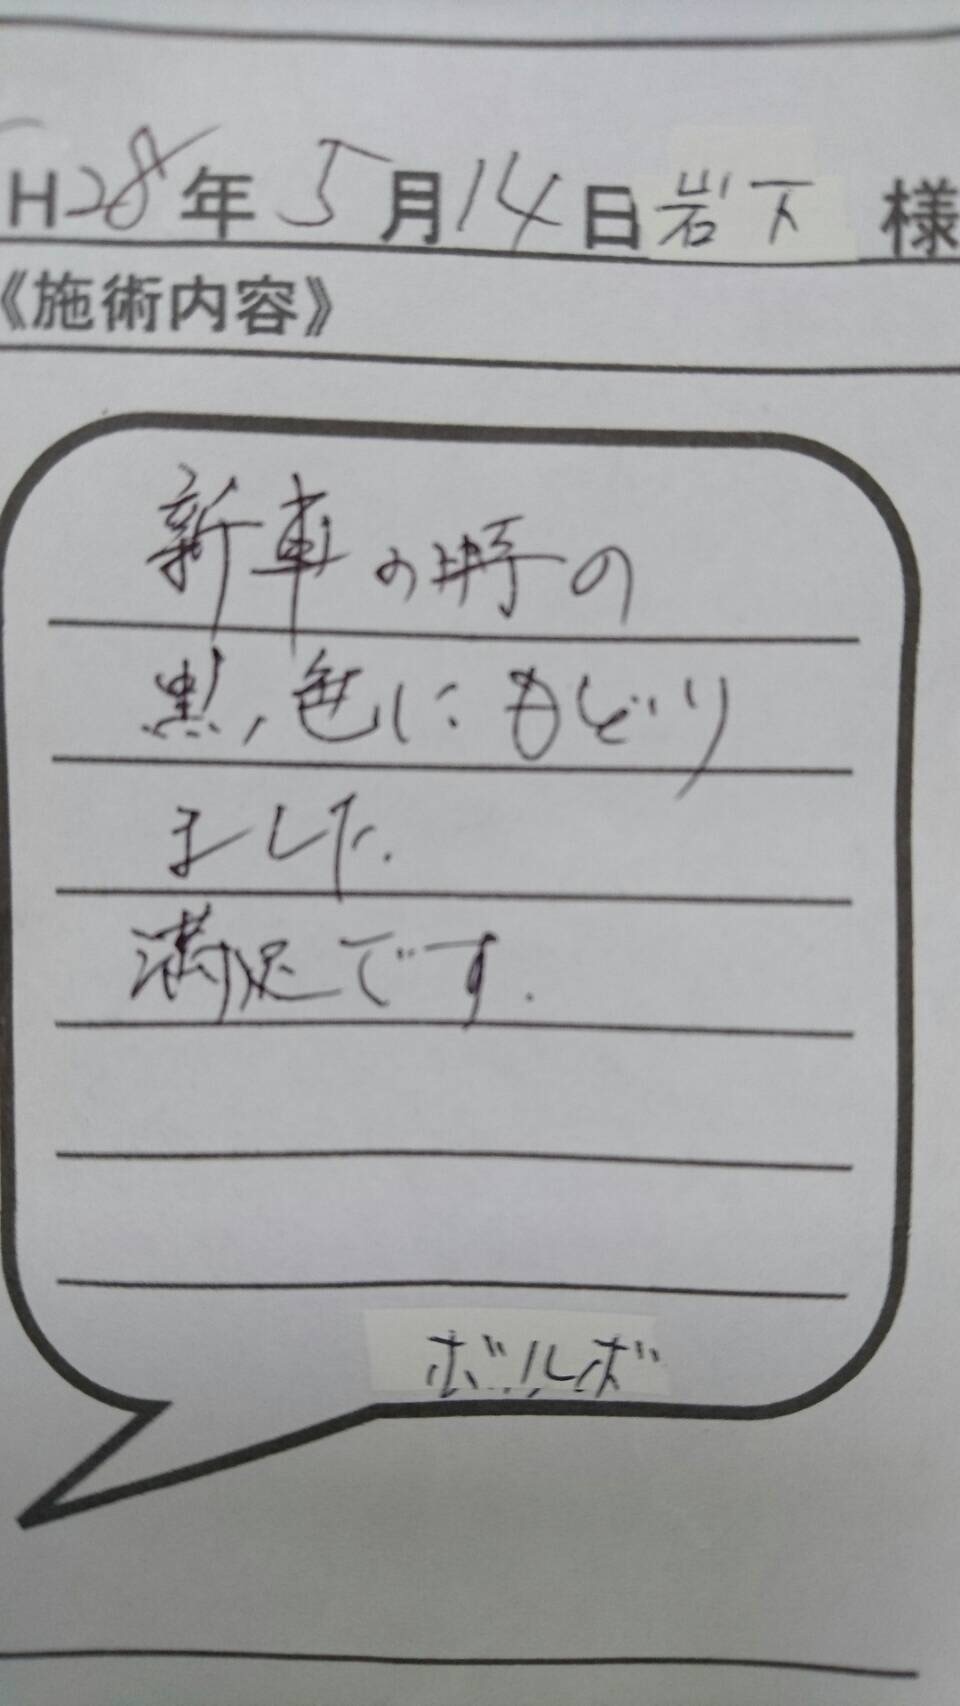 H28年5月14日 岩下 様
《施術内容》
新車の時の
黒色にもどり
ました.
満足です.
ボルボ